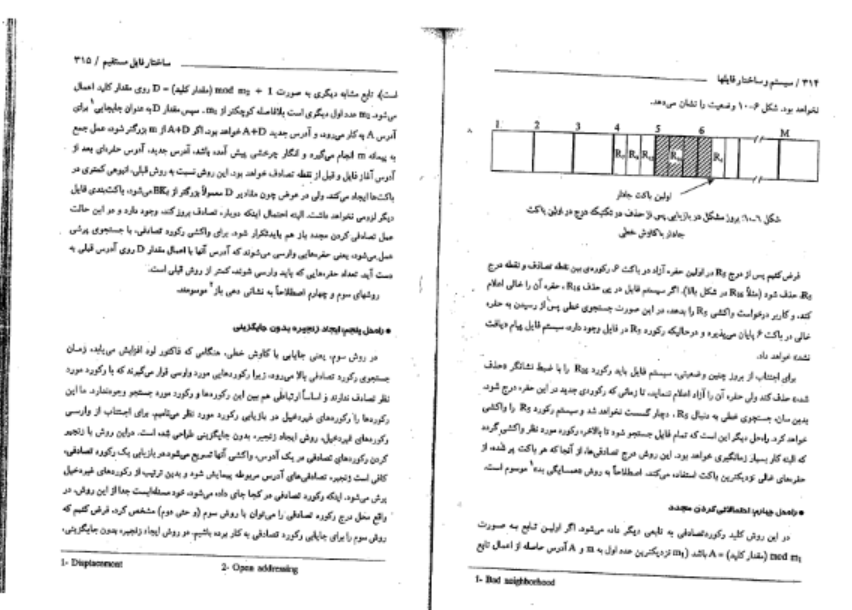 ۳۱۴ / سیستم و ساختار فایلها
نخواهد بود. شکل ۶-۱۰ وضعیت را نشان می‌دهد.
1 2 3 4 5 6 M
اولین باکت جادار
شکل ۶-۱۰: بروز مشکل در بازیابی پس از حذف در تکنیک درج در اولین باکت
جادار با کاوش خطی
فرض کنیم پس از درج R5 در اولین حفره آزاد در باکت ۶، رکوردی بین نقطه تصادف و نقطه درج
R5، حذف شود (مثلاً R16 در شکل بالا). اگر سیستم فایل در پی حذف R16، حفره آن را خالی اعلام
کند، و کاربر درخواست واکشی R5 را بدهد، در این صورت جستجوی خطی پس از رسیدن به حفره
خالی در باکت ۶ پایان می‌پذیرد و درحالیکه رکورد R5 در فایل وجود دارد، سیستم فایل پیام «یافت
نشد» خواهد داد.
برای اجتناب از بروز چنین وضعیتی، سیستم فایل باید رکورد R16 را با ضبط نشانگر «حذف
شده» حذف کند ولی حفره آن را آزاد اعلام ننماید، تا زمانی که رکوردی جدید در این حفره درج شود.
بدین سان، جستجوی خطی به دنبال R5، دچار گسست نخواهد شد و سیستم رکورد R5 را واکشی
خواهد کرد. راه‌حل دیگر این است که تمام فایل جستجو شود تا بالاخره رکورد مورد نظر واکشی گردد
که البته کار بسیار زمانگیری خواهد بود. این روش درج تصادفی‌ها، از آنجا که هر باکت پر شده، از
حفره‌های خالی نزدیکترین باکت استفاده می‌کند، اصطلاحاً به روش «همسایگی بد»۱ موسوم است.
● راه‌حل چهارم: تصادفی کردن مجدد
در این روش کلید رکورد تصادفی به تابعی دیگر داده می‌شود. اگر اولین تابع به صورت
A = (مقدار کلید) mod m1 باشد (m1 نزدیکترین عدد اول به m و A آدرس حاصله از اعمال تابع
1- Bad neighborhood
ساختار فایل مستقیم / ۳۱۵
است)، تابع مشابه دیگری به صورت D = (مقدار کلید) mod m2 + 1 روی مقدار کلید اعمال
می‌شود. m2 عدد اول دیگری است بلافاصله کوچکتر از m1. سپس مقدار D به عنوان جابجایی۱ برای
آدرس A به کار می‌رود، و آدرس جدید A+D خواهد بود. اگر A+D از m بزرگتر شود، عمل جمع
به پیمانه m انجام می‌گیرد و انگار چرخشی پیش آمده باشد، آدرس جدید، آدرس حفره‌ای بعد از
آدرس آغاز فایل و قبل از نقطه تصادف خواهد بود. این روش نسبت به روش قبلی، انبوهی کمتری در
باکت‌ها ایجاد می‌کند، ولی در عوض چون مقادیر D معمولاً بزرگتر از BKf می‌شود، باکت‌بندی فایل
دیگر لزومی نخواهد داشت. البته احتمال اینکه دوباره، تصادف بروز کند، وجود دارد و در این حالت
عمل تصادفی کردن مجدد باز هم باید تکرار شود. برای واکشی رکورد تصادفی، با جستجوی پرشی
عمل می‌شود، یعنی حفره‌هایی وارسی می‌شوند که آدرس آنها با اعمال مقدار D روی آدرس قبلی به
دست آید. تعداد حفره‌هایی که باید وارسی شوند، کمتر از روش قبلی است.
روشهای سوم و چهارم اصطلاحاً به نشانی دهی باز۲ موسومند.
● راه‌حل پنجم: ایجاد زنجیره بدون جایگزینی
در روش سوم، یعنی جایابی با کاوش خطی، هنگامی که فاکتور لود افزایش می‌یابد، زمان
جستجوی رکورد تصادفی بالا می‌رود، زیرا رکوردهایی مورد وارسی قرار می‌گیرند که با رکورد مورد
نظر تصادف ندارند و اساساً ارتباطی هم بین این رکوردها و رکورد مورد جستجو وجود ندارد. ما این
رکوردها را رکوردهای غیردخیل در بازیابی رکورد مورد نظر می‌نامیم. برای اجتناب از وارسی
رکوردهای غیردخیل، روش ایجاد زنجیره، بدون جایگزینی طراحی شده است. در این روش با زنجیر
کردن رکوردهای تصادفی در یک آدرس، واکشی آنها تسریع می‌شود. در بازیابی یک رکورد تصادفی،
کافی است زنجیره تصادفی‌های آدرس مربوطه پیمایش شود و بدین ترتیب از رکوردهای غیردخیل
پرش می‌شود. اینکه رکورد تصادفی در کجا جای داده می‌شود، خود مسئله‌ایست جدا از این روش. در
واقع محل درج رکورد تصادفی را می‌توان با روش سوم (و حتی دوم) مشخص کرد. فرض کنیم که
روش سوم را برای جایابی رکورد تصادفی به کار برده باشیم. در روش ایجاد زنجیره بدون جایگزینی،
1- Displacement 2- Open addressing